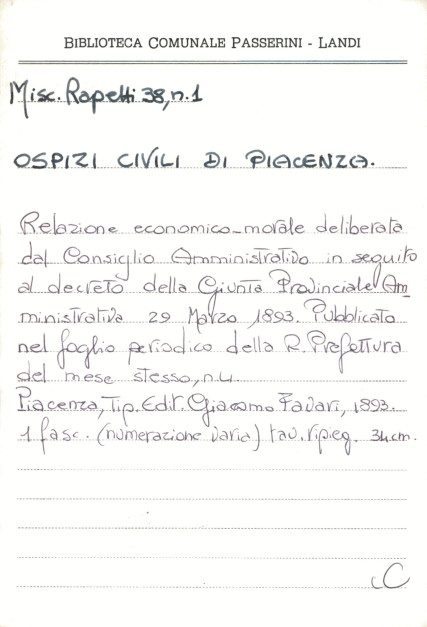 BIBLIOTECA COMUNALE PASSERINI - LANDI
Misc. Rapetti 38, n. 1
OSPIZI CIVILI DI PIACENZA.
Relazione economico-morale deliberata
dal Consiglio Amministrativo in seguito
al decreto della Giunta Provinciale Am
ministrativa 29 Marzo 1893. Pubblicato
nel foglio periodico della R. Prefettura
del mese stesso, n. 4.
Piacenza, Tip. Edit. Giacomo Favari, 1893.
1 fasc. (numerazione varia) tav. ripieg. 34 cm.
C